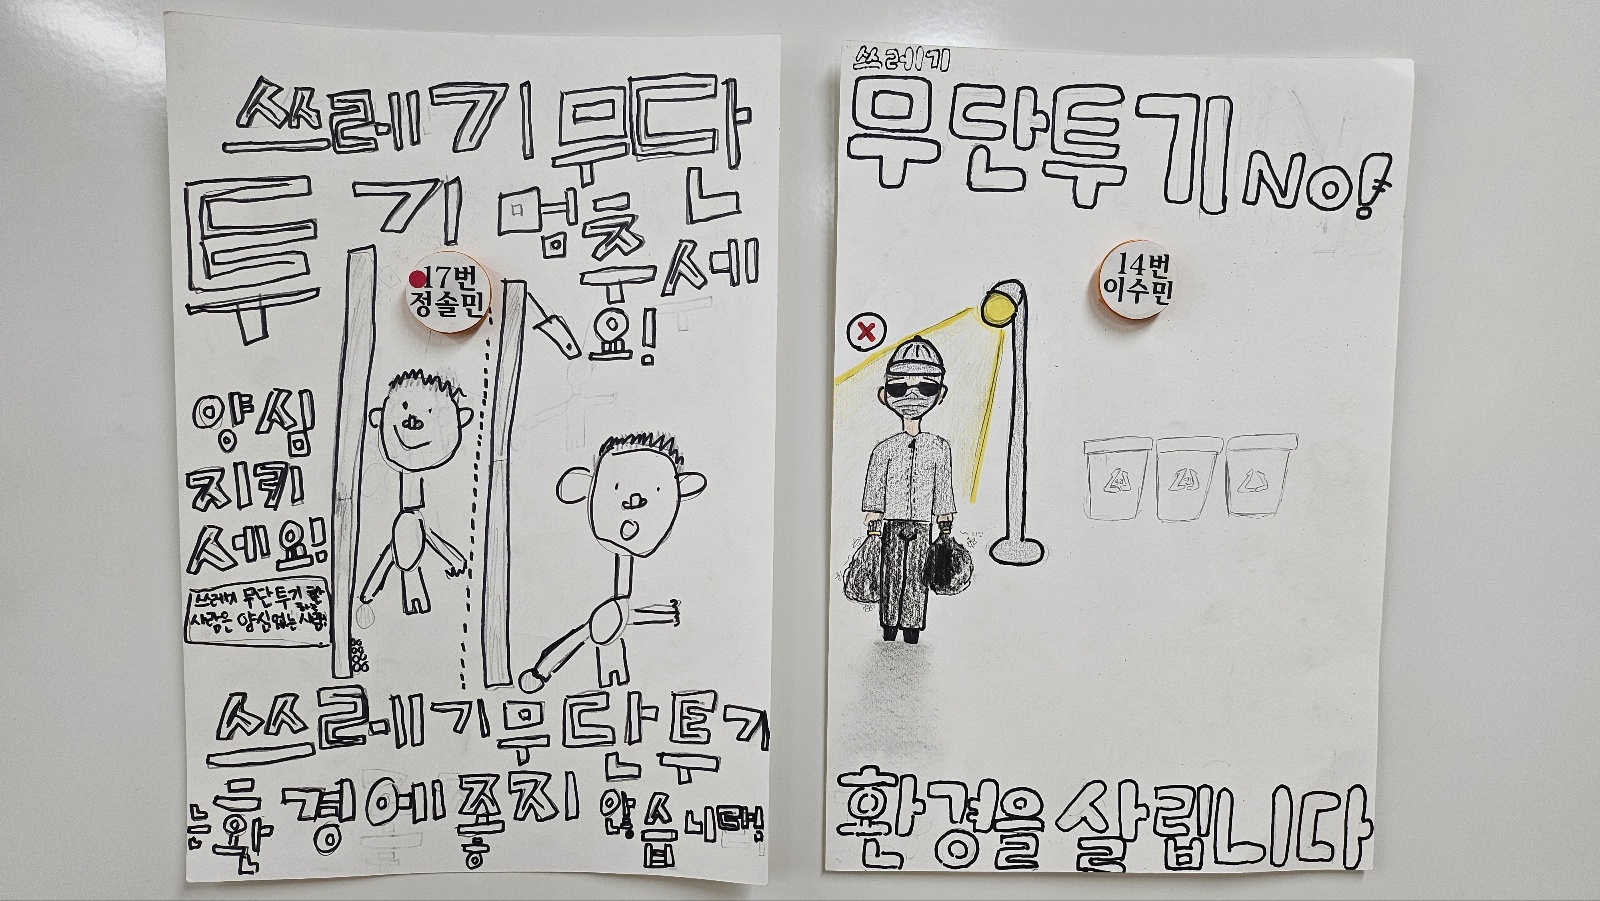 쓰레기 무단
투기 멈추세
요!
17번
정솔민
양심
지키
세요!
쓰레기 무단투기 하는
사람은 양심 없는 사람!
쓰레기 무단투기
는 환경에 좋지 않습니다!
쓰레기
무단투기 NO!
14번
이수민
환경을 살립니다